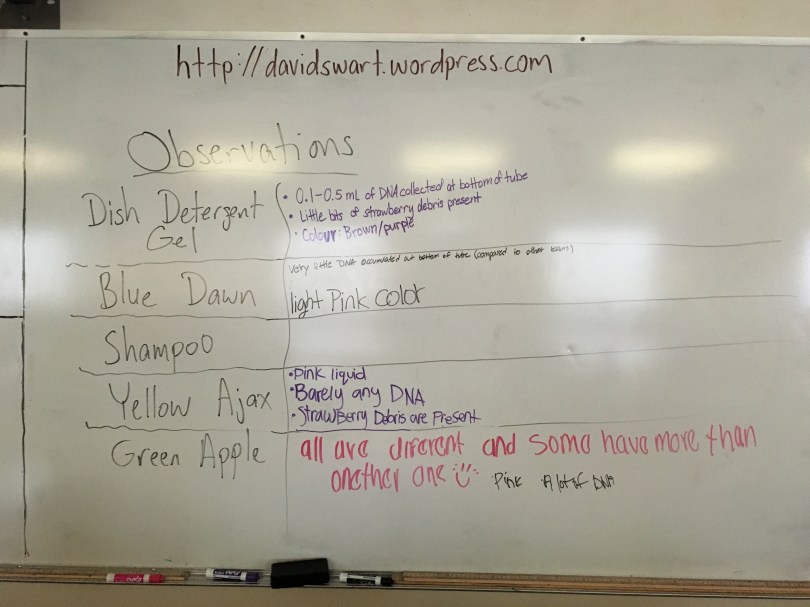 http://davidswart.wordpress.com
Observations
Dish Detergent
Gel
• 0.1-0.5 mL of DNA collected at bottom of tube
• Little bits of strawberry debris present
• Colour: Brown/purple
Blue Dawn
Very little DNA accumulated at bottom of tube (compared to other teams)
light Pink color
Shampoo
Yellow Ajax
• Pink liquid
• Barely any DNA
• StrawBerry Debris are Present
Green Apple
all are diferent and some have more than
onether one
Pink A lot of DNA